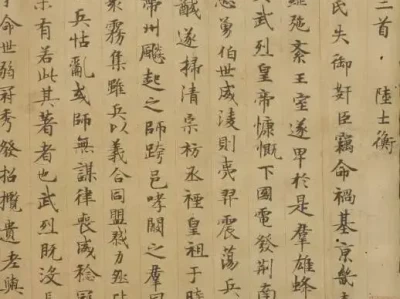 三首，陸士衡
民失御奸臣竊命禍基京畿
弛紊王室遂卑於是群雄蜂
武烈皇帝慷慨下國電發荊南
忠勇伯世威淩則夷羿震蕩兵
馘遂掃清宗祊丞禋皇祖于時
帶州飈起之師跨邑哮闞之群
霧集雖兵以義合同盟戮力然
兵怙亂或師無謀律喪威稔寇
未有若此其著者也武烈既没長
命世弱冠秀發招攬遺老與